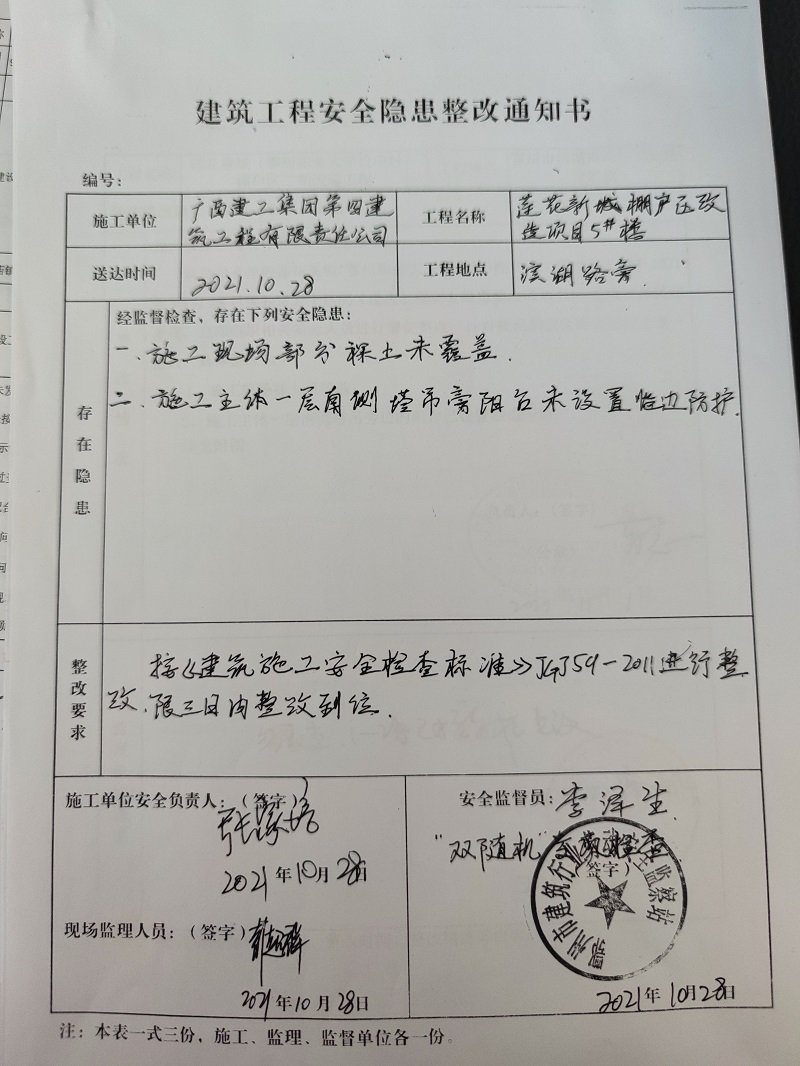 建筑工程安全隐患整改通知书
编号：
施工单位
广西建工集团第四建
筑工程有限责任公司
工程名称
莲花新城棚户区改
造项目5#楼
送达时间
2021.10.28
工程地点
滨湖路旁
存在隐患
经监督检查、存在下列安全隐患：
一、施工现场部分裸土未覆盖.
二、施工主体一层南侧塔吊旁阳台未设置临边防护.
整改要求
按《建筑施工安全检查标准》JGJ59-2011进行整
改.限三日内整改到位.
施工单位安全负责人：（签字）
2021年10月28日
现场监理人员：（签字）
2021年10月28日
安全监督员：李泽生
"双随机"
（签字）
鄂州市建筑行业安全监察站
2021年10月28日
注：本表一式三份，施工、监理、监督单位各一份。